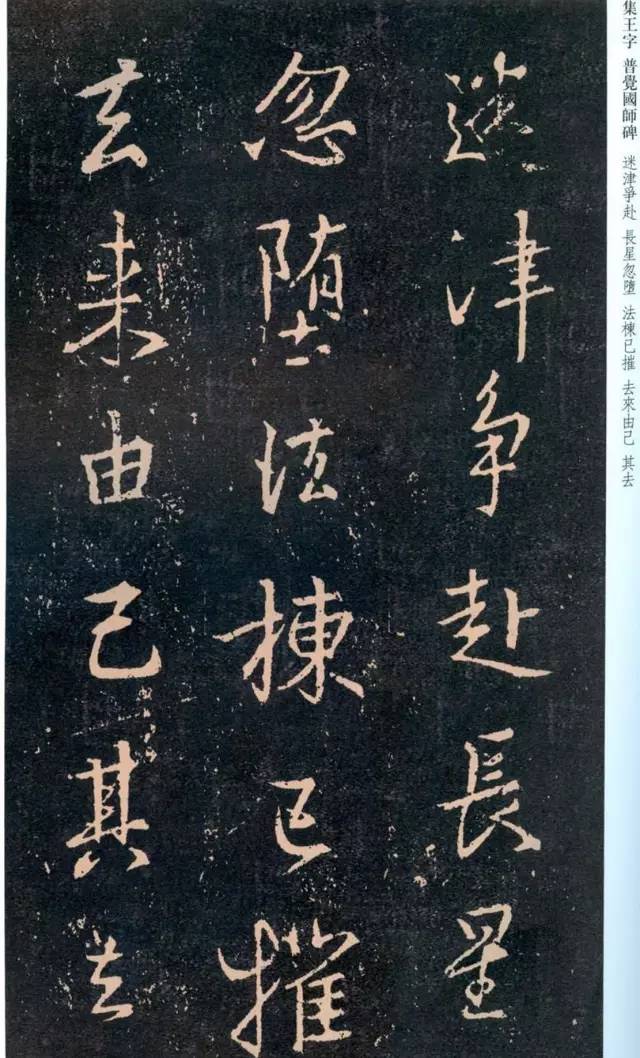 集王字 普覺國師碑 迷津爭赴 長星忽墮 法棟已摧 去來由己 其去
迷津争赴長星
忽堕法棟已摧
去来由己其去